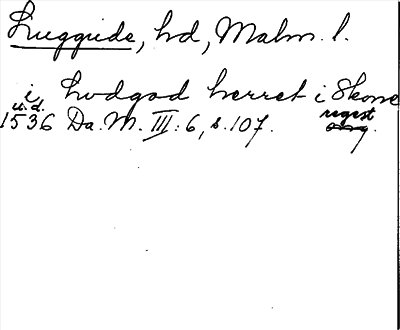 Luggude, hd, Malm. l.
i Lvdgod herret i Skone
u.d.
1536 Da. M. III: 6, s. 107. regest